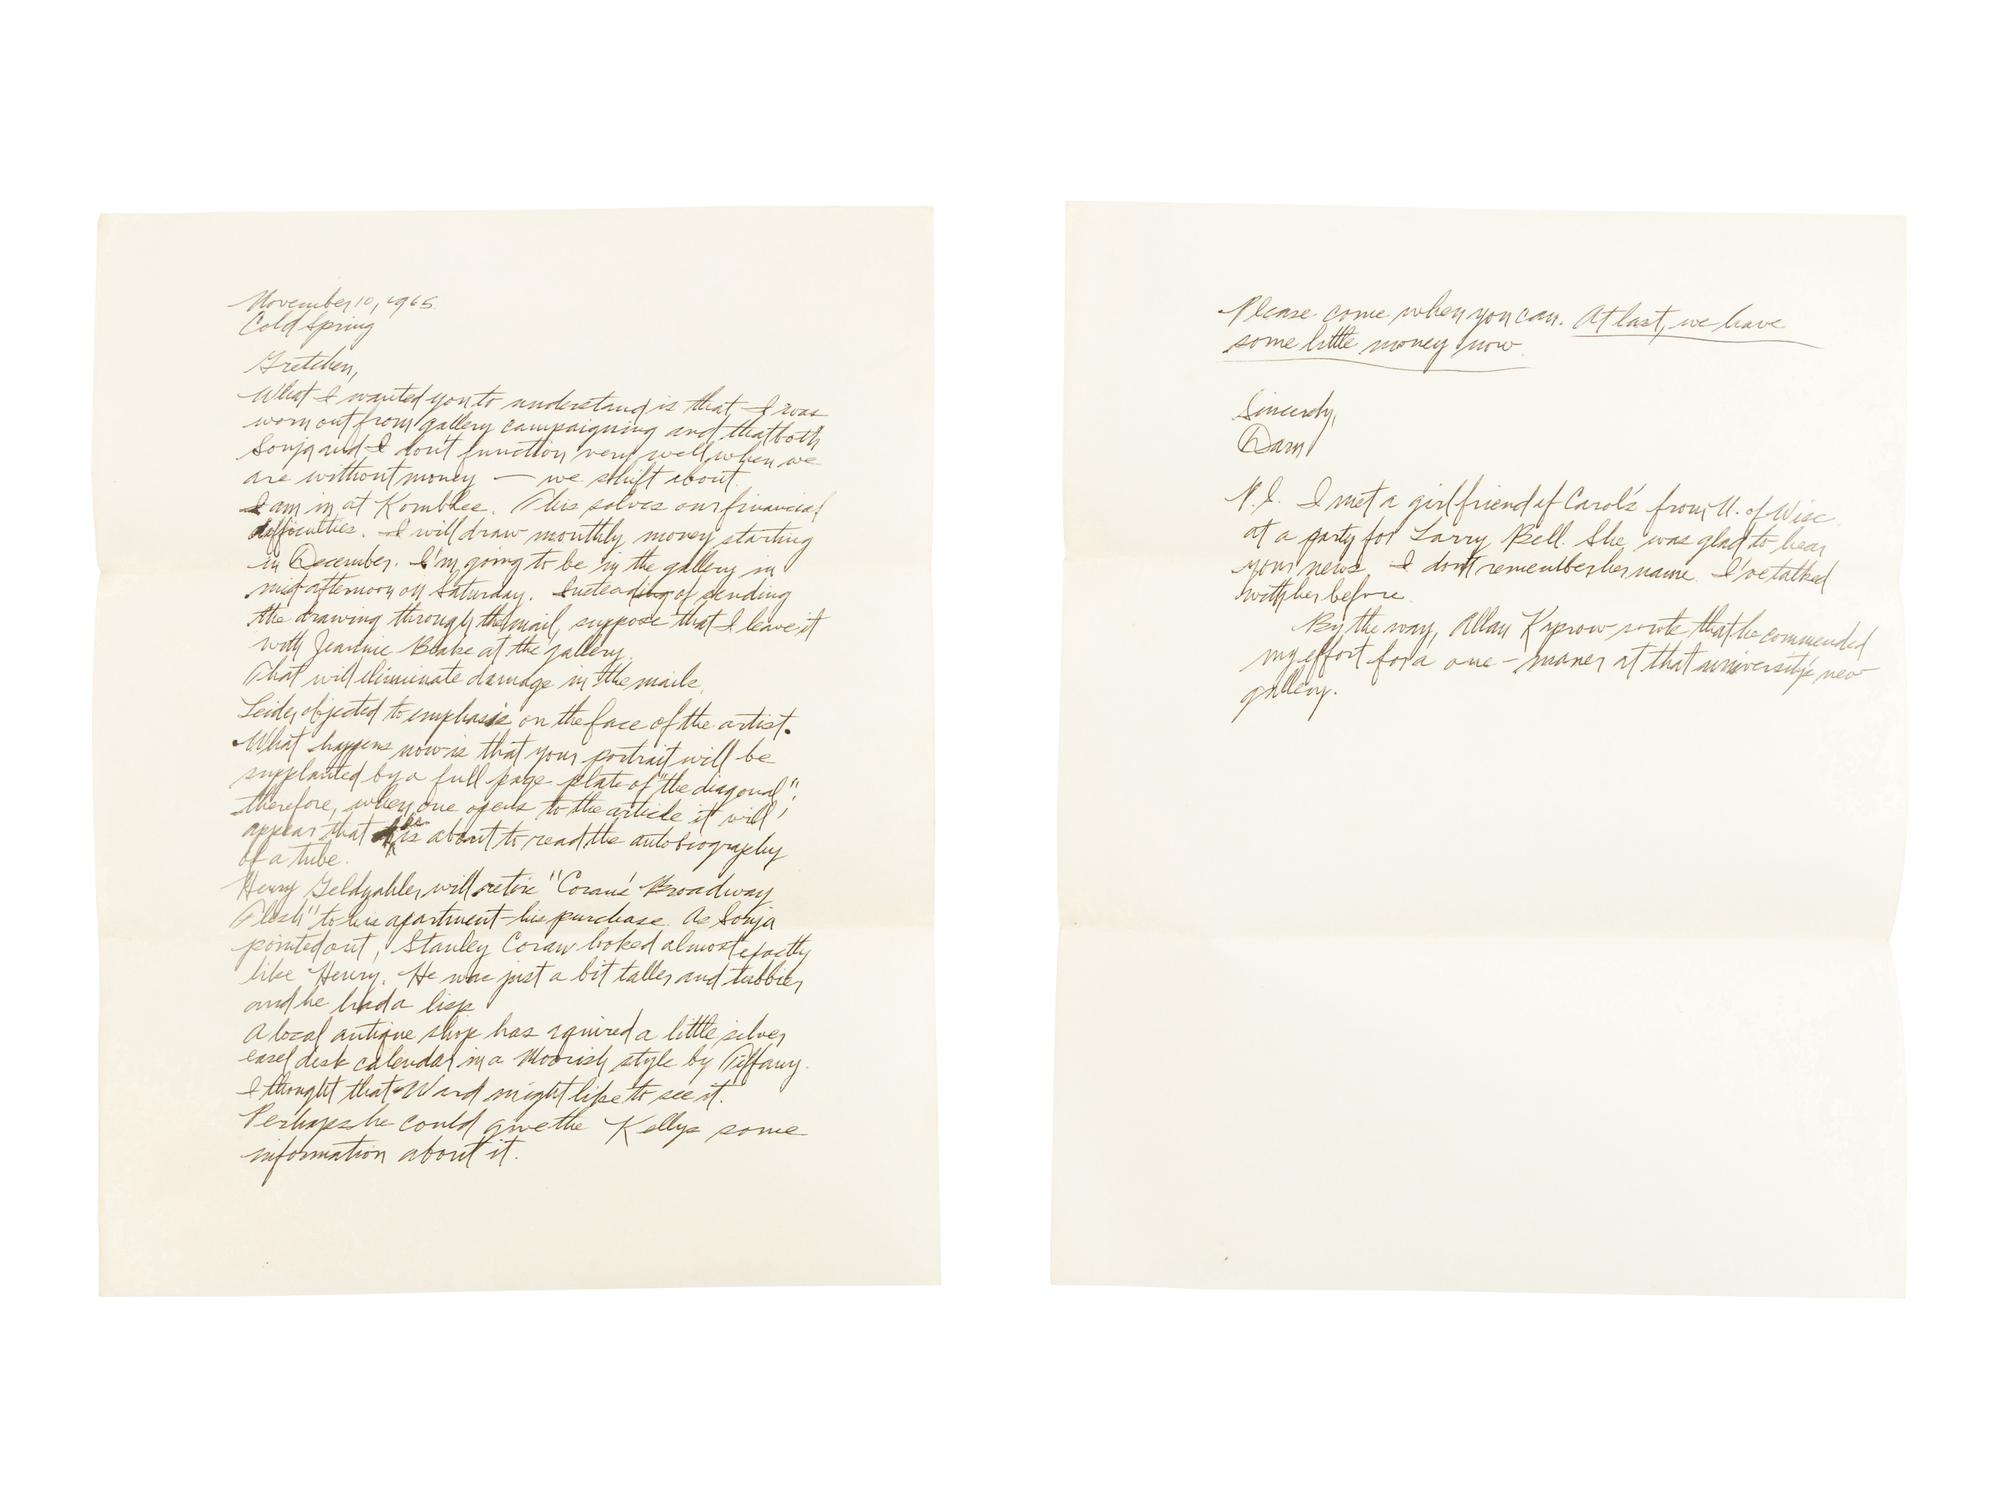 November 10, 1965.
Cold Spring
Gretchen,
What I wanted you to understand is that I was
worn out from gallery campaigning and that both
Sonja and I don't function very well when we
are without money — we shift about.
I am in at Kornblee. This solves our financial
difficulties. I will draw monthly money starting
in December. I'm going to be in the gallery in
mid-afternoon on Saturday. Instead of sending
the drawing through the mail, suppose that I leave it
with Jeannie Blake at the gallery.
That will eliminate damage in the mails.
Leider objected to emphasis on the face of the artist.
What happens now is that your portrait will be
supplanted by a full page plate of "the diagonal";
therefore, when one opens to the article it will
appear that he is about to read the autobiography
of a tube.
Henry Geldzahler will retire "Coran's Broadway
Flesh" to his apartment - his purchase. As Sonja
pointed out, Stanley Coran looked almost exactly
like Henry. He was just a bit taller and tubbier
and he had a lisp.
A local antique shop has aquired a little silver
easel desk calendar in a Moorish style by Tiffany.
I thought that Ward might like to see it.
Perhaps he could give the Kellys some
information about it.
Please come when you can. At last, we have
some little money now.
Sincerely,
Dan
P.S. I met a girl friend of Carol's from U. of Wisc.
at a party for Larry Bell. She was glad to hear
your news. I don't remember her name. I've talked
with her before.
By the way, Allan Kaprow wrote that he commended
my effort for a one-maner at that university's new
gallery.